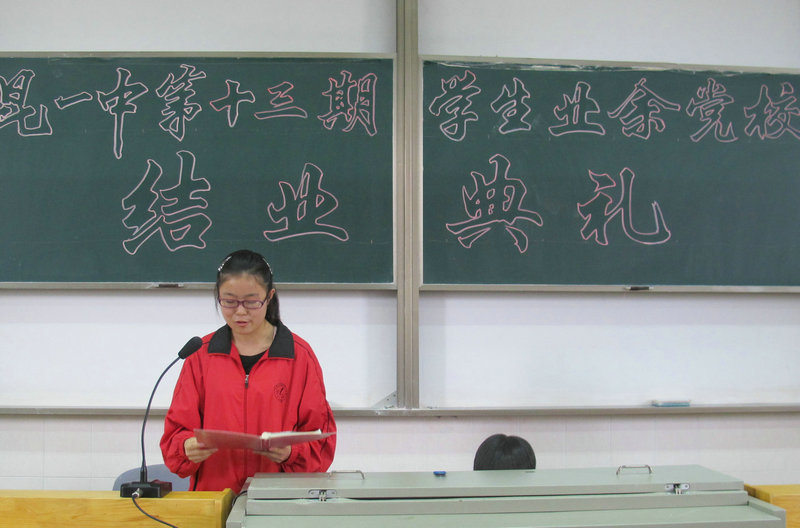 昆一中第十三期 学生业余党校
结业 典礼